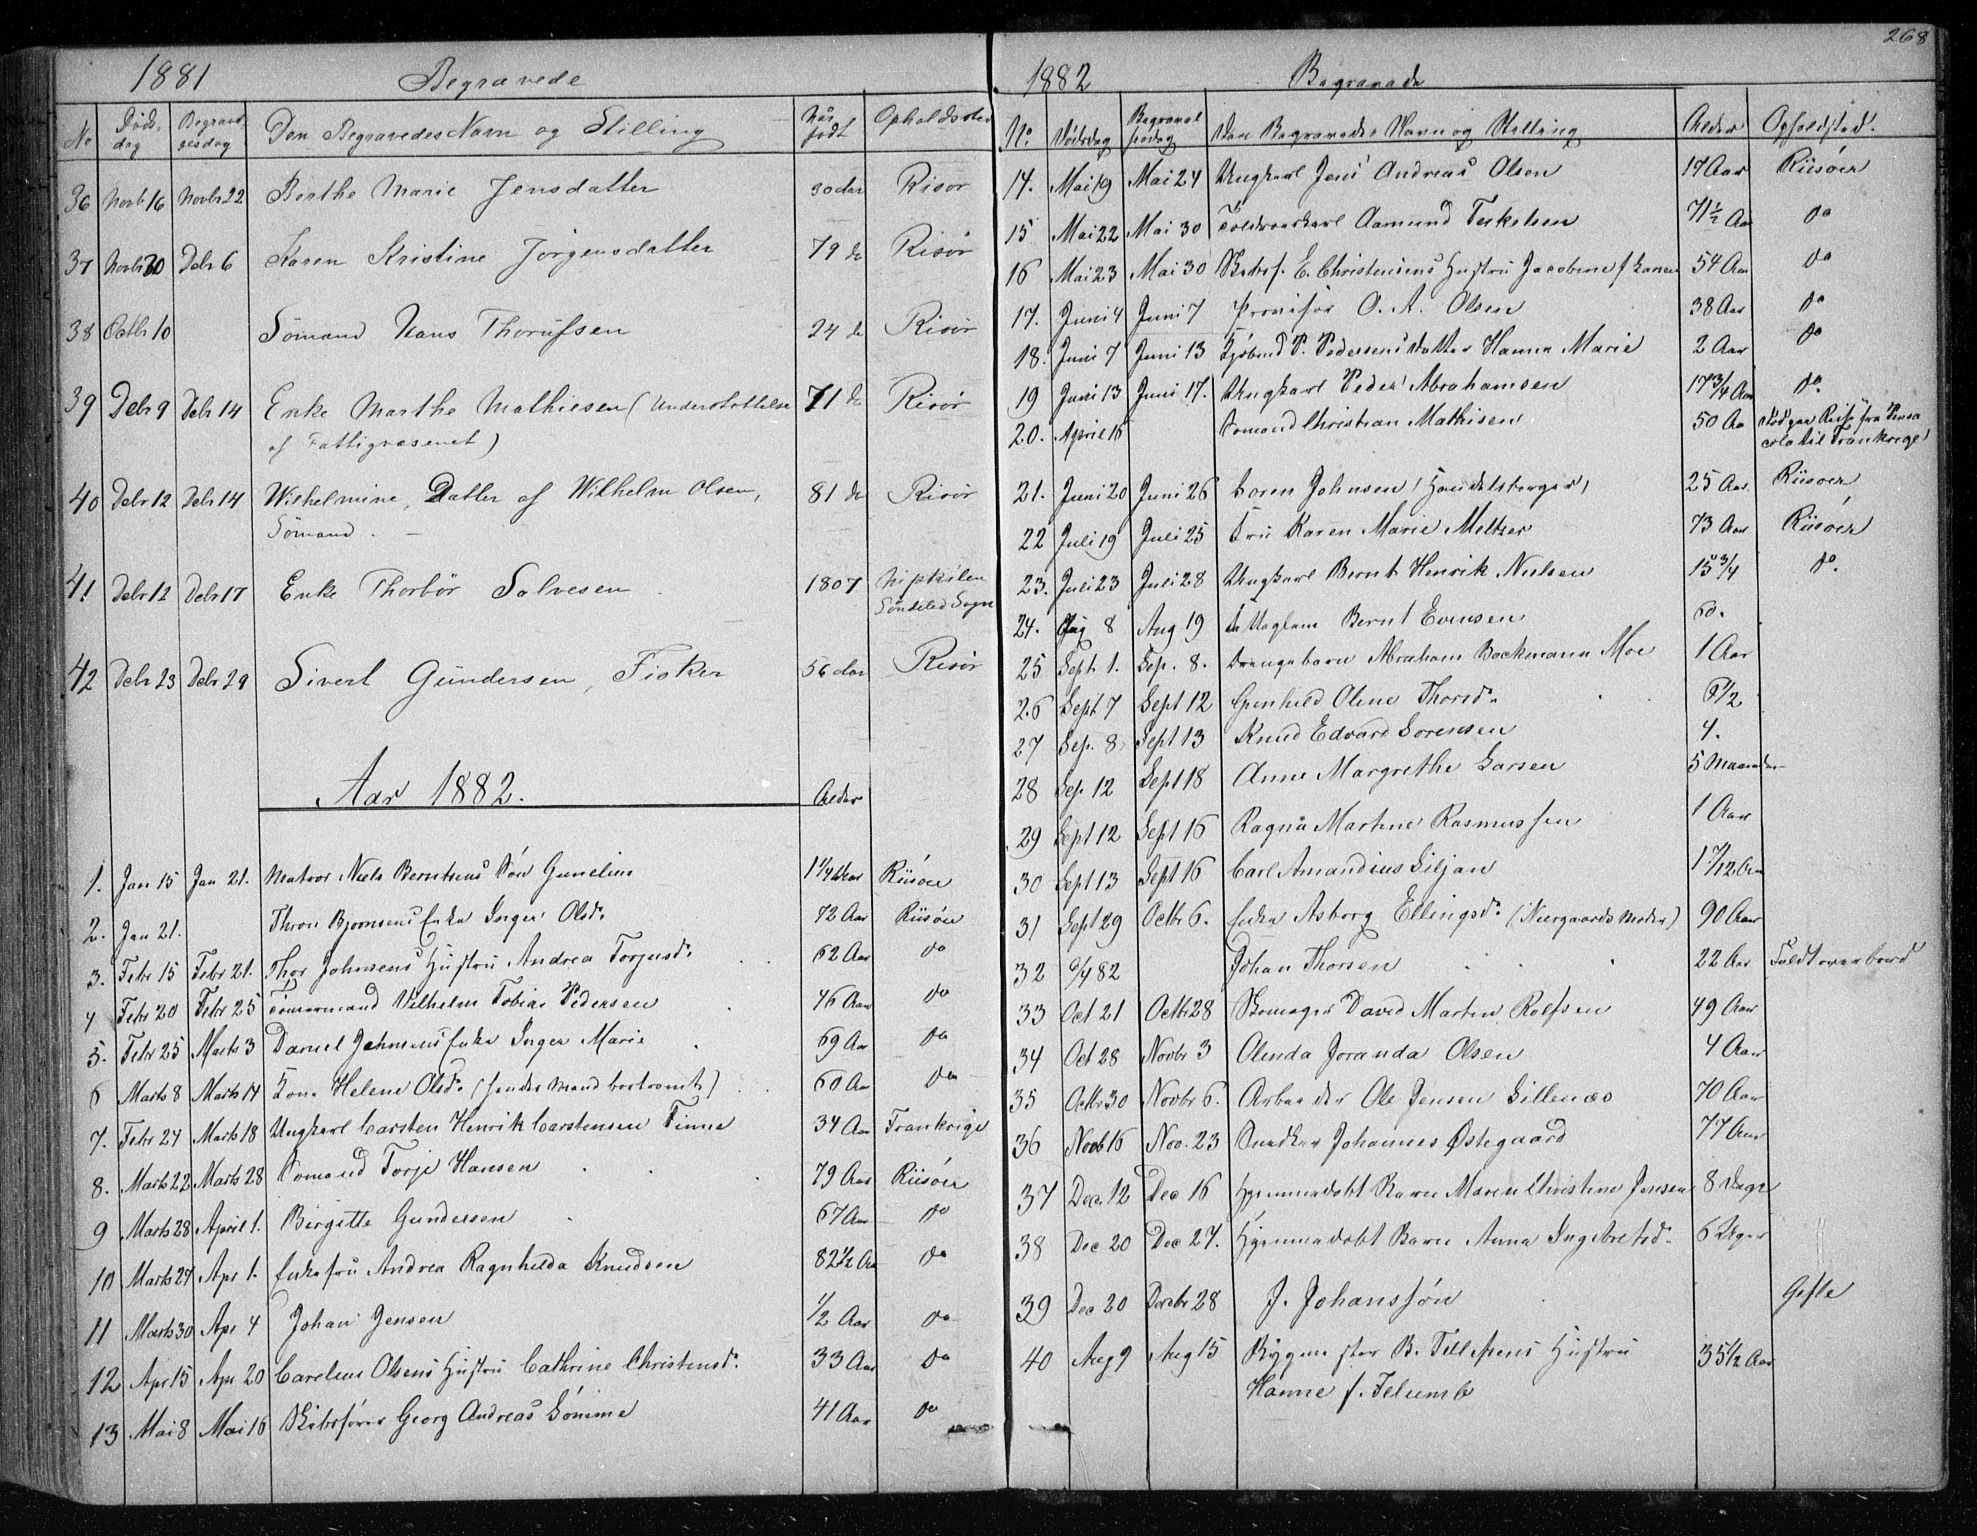 268
1881 Begravede
No Döds-dag Begravelsesdag Den Begravedes Navn og Stilling Når født Opholdssted
36 Novb 16 Novbr 22 Berthe Marie Jensdatter 30 Aar Risør
37 Novbr 30 Debr 6 Karen Kristine Jörgensdatter 79 do Risør
38 Octbr 10 Sömand Hans 24 do Risör
39 Debr 9 Debr 14 Enke Marthe Mathiesen (Understøttelse 71 do Risör
af Fattigvæsenet)
40 Debr 12 Debr 14 Wilhelmine, Datter af Wilhelm Olsen, 81 do Risör
Sömand. —
41 Debr 12 Debr 17 Enke Thorbör Salvesen 1807
Söndeled Sogn
42 Debr 23 Debr 29 Sivert Gundersen, Fisker 56 Aar Risør
Aar 1882. Alder
1. Jan 15 Jan 21. Matros Niels Berntsens Sön Gunelius 1 1/4 Aar Riisöer
2. Jan 21. Bjørnsens Enke Inger Olsd. 72 Aar Riisöer
3. Febr 15 Febr 21. Johnsens Hustru Andrea Torjusd. 62 Aar do
4 Febr 20 Febr 25 Tømmermand Vilhelm Tobias Pedersen 46 Aar do
5. Febr 25 Marts 3 Daniel Johnsens Enke Inger Marie 69 Aar do
6 Marts 8 Marts 14 Kone Helene Olsd. (hendes Mand bortrømt) 60 Aar do
7. Febr 24 Marts 18 Ungkarl Carsten Henrik Carstensen Finne 34 Aar Frankrige
8. Marts 22 Marts 28 Sømand Torje Hansen 79 Aar Riisöer
9 Marts 28 April 1. Birgitte Gundersen 67 Aar do
10 Marts 24 Apr 1. Enkefru Andrea Ragnhilda Knudsen 82 1/2 Aar do
11 Marts 30 Apr 4 Johan Jensen 1/2 Aar do
12 Apr 15 Apr 20 Carelius Olsens Hustru Cathrine Christensd. 33 Aar do
13 Mai 8 Mai 16 Skibsfører Georg Andreas Sømme 41 Aar do
1882 Begravede
No. Dødsdag Begravelsesdag Den Begravedes Navn og Stilling Alder Opholdsted.
14. Mai 19 Mai 24 Ungkarl Jens Andreas Olsen 17 Aar Riisöer
15 Mai 22 Mai 30 Aamund Terkelsen 71 1/2 Aar do
16 Mai 23 Mai 30 Skibsf. E. Christensens Hustru Jacobine f. 54 Aar do
17. Juni 4 Juni 7 Provisor O. A. Olsen 38 Aar do
18. Juni 7 Juni 13 Kjøbmd P. Pedersens Datter Hanna Marie 2 Aar do
19 Juni 13 Juni 17. Ungkarl Peder Abrahamsen 17 3/4 Aar do.
20. April 15 Sømand Christian Mathisen 50 Aar Død paa Reise fra Pensa
cola til Frankrige
21. Juni 20 Juni 26 Søren Johnsen, Handelsborger, 25 Aar Riisöer
22 Juli 19 Juli 25 Fru Karen Marie Meltzer 73 Aar Riisöer
23. Juli 23 Juli 28 Ungkarl Bernt Henrik Nielsen 15 3/4 do.
24. Aug 8 Aug 19 Bernt Evensen 60.
25 Sept. 1. Sep. 8. Drengebarn Abraham Bockmann Moe 1 Aar
26 Sept 7 Sept 12 Gunhild Oline Thorsd.
27 Sep. 8. Sept 13 Knud Edvard Sorensen 4.
28 Sep. 12 Sept 18 Anne Margrethe Larsen 5 Maaneder
29 Sept 12 Sept 16 Ragna Martine Rasmussen 1 Aar
30 Sept 13 Sept 16 Carl Amandius Siljan 1 7/12 Aar
31 Sept 29 Octbr 6. Enke Asborg Ellingsd. (Neergaards Moder) 90 Aar
32 82 Johan Thorsen 22 Aar Faldt overbord
33 Oct 21 Octbr 28 Skomager David Martin Rolfsen 49 Aar
34 Oct 28 Novbr 3 Olenda Joranda Olsen 4 Aar
35 Octbr 30 Novbr 6. Arbeider Ole Jensen Gillenæs 70 Aar
36 Novb 16 Nov. 23 Snedker Johannes Østegaard 77 Aar
37 Dec. 12 Dec 16 Hjemmedøbt Barn Maren Christine Jensen 8 Dage
38 Dec 20 Dec 27. Hjemmedøbt Barn Anna Ingebretsd. 6 Uger
39 Dec 20 Decbr 28 J. Johanssön Gefle
40 Aug 9 Aug 15 B. Tellefsens Hustru 35 1/2 Aar
Hanne f.